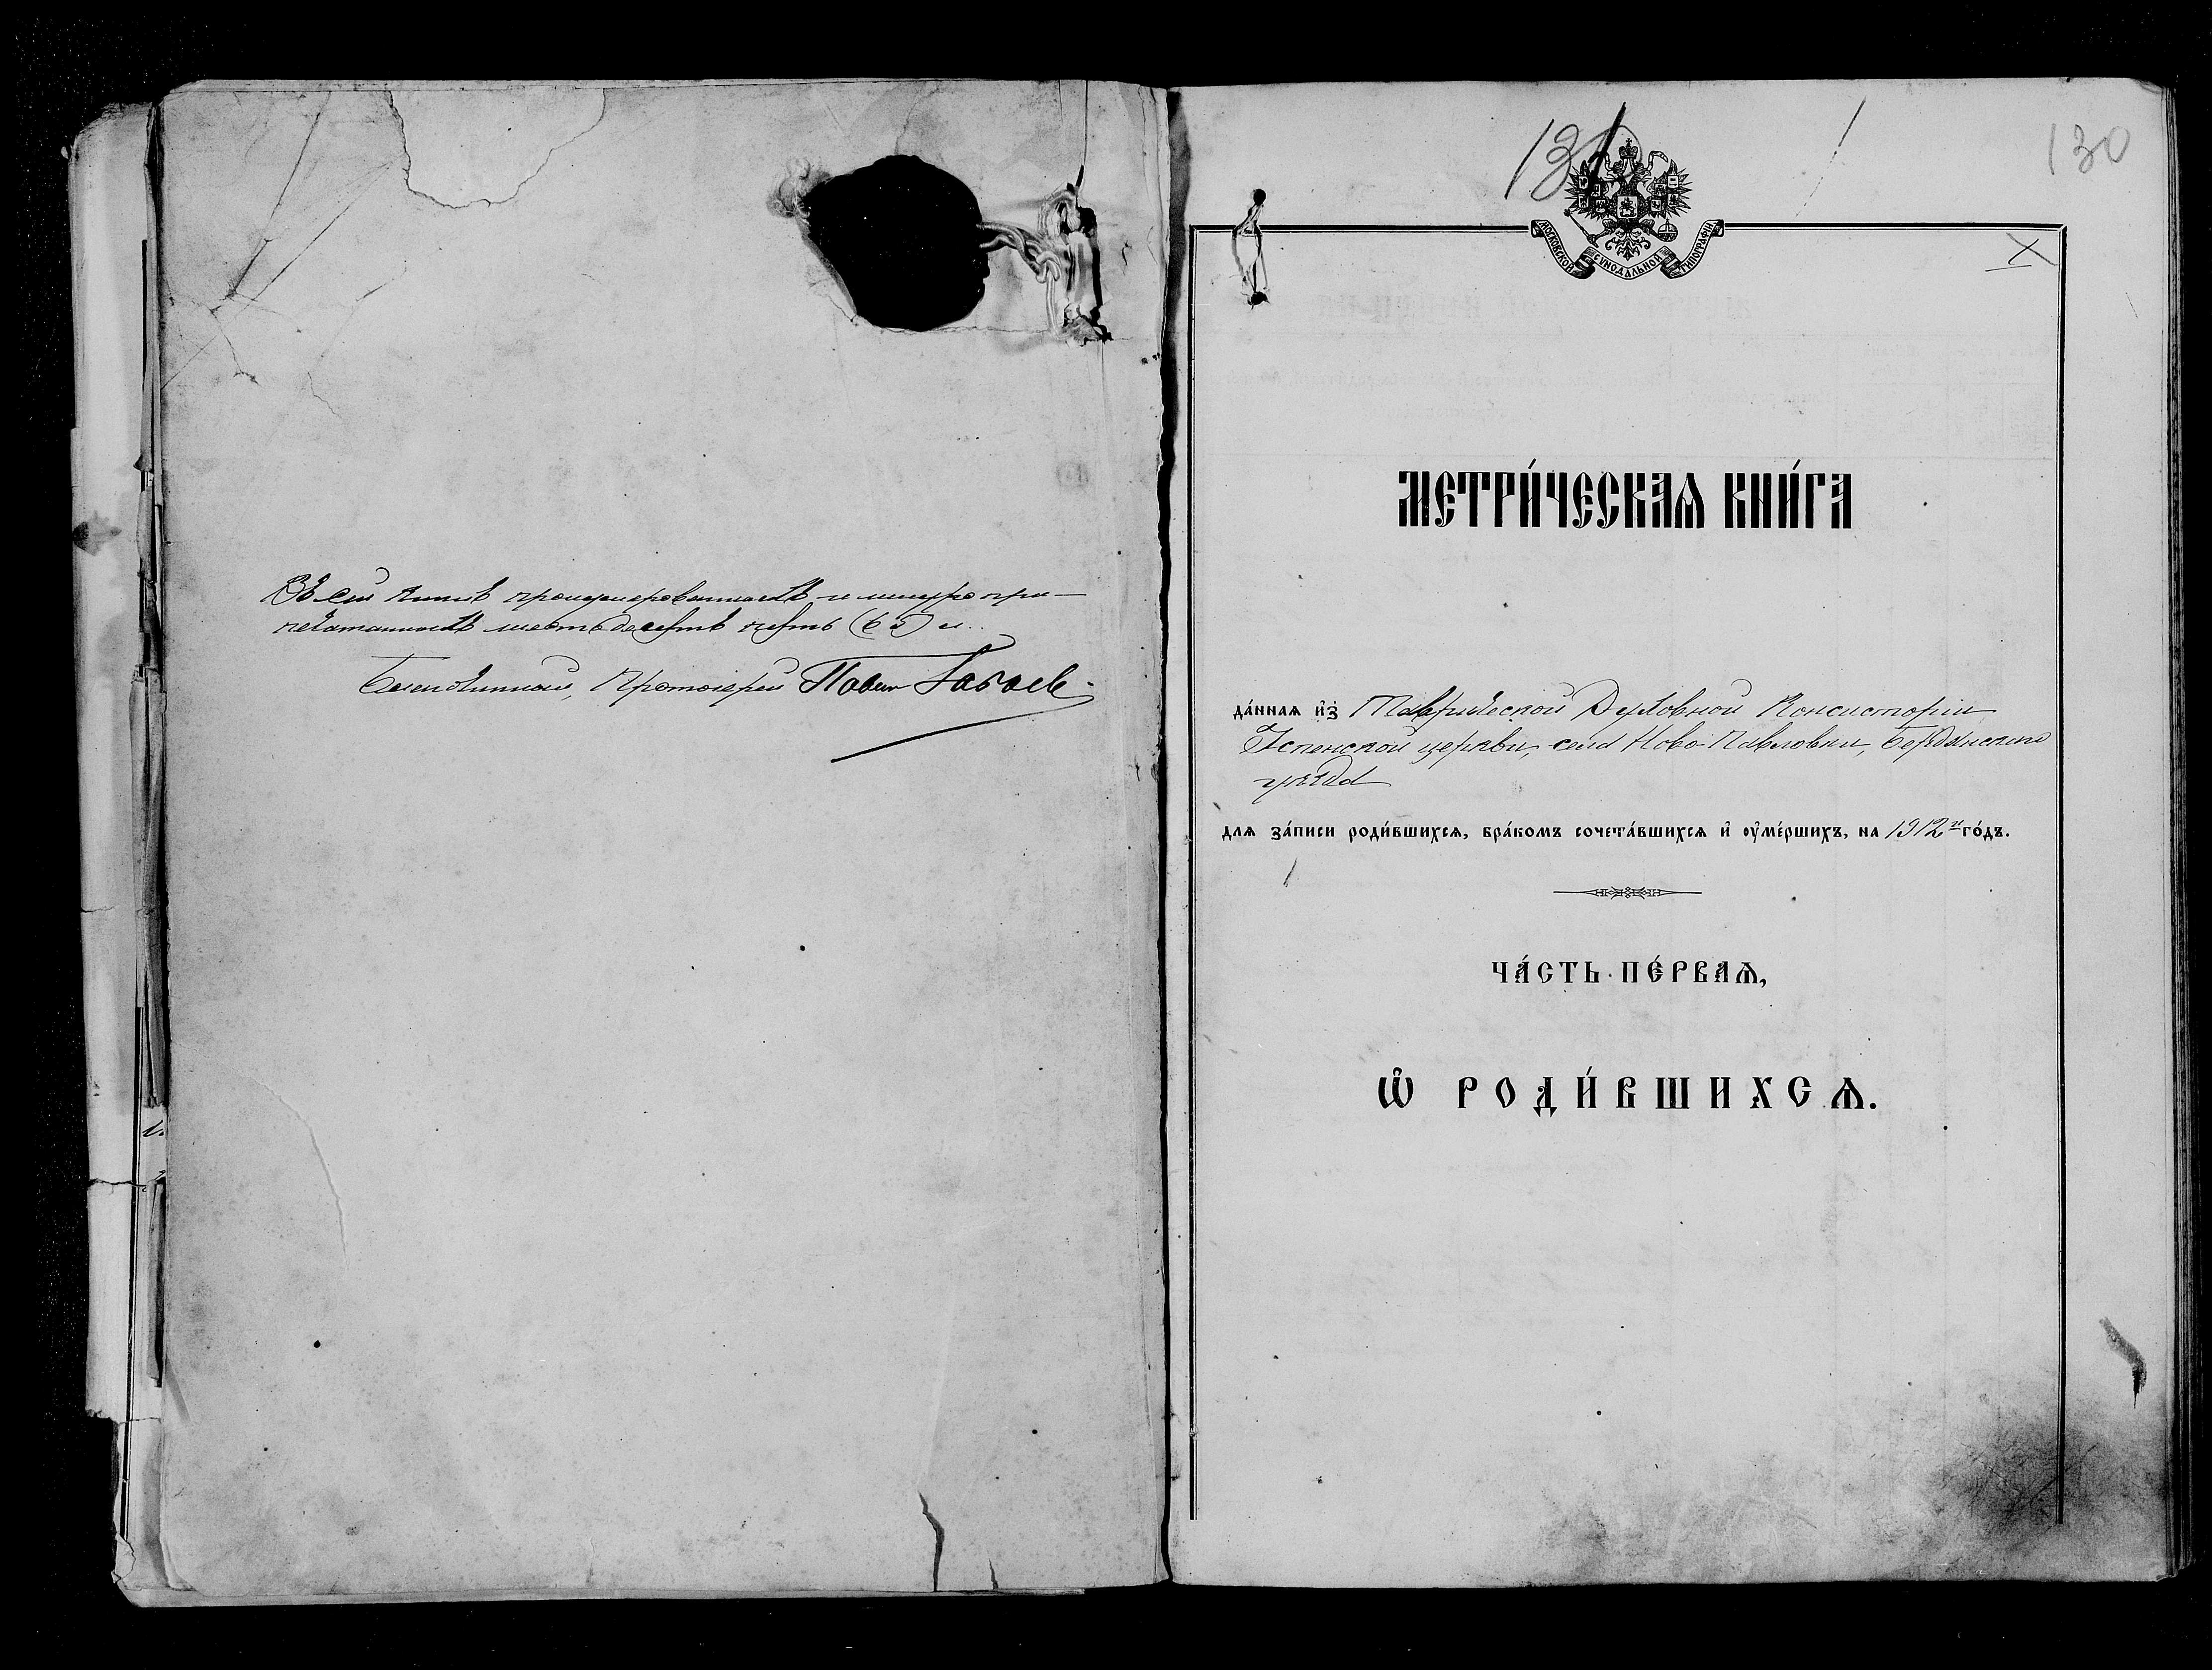 Въ сей книгѣ пронумерованныхъ и шнуропри-
печатанныхъ шестьдесятъ пять (65) л.
Благочинный, Протоіерей Павелъ
131
130
X
МОСКОВСКОЙ СУНОДАЛЬНОЙ ТИПОГРАФІИ
МЕТРИ́ЧЕСКАѦ КНИ́ГА
да́ннаѧ и҆з̾ Таврической Духовной Консисторіи
Успенской церкви, села Ново-Павловки, Бердянскаго
уѣзда
для за́писи роди́вшихсѧ, бра́комъ сочета́вшихсѧ и҆ ᲂу҆ме́ршихъ, на 1912й го́дъ.
ЧА́СТЬ ПЕ́РВАѦ,
Ѽ РОДИ́ВШИХСѦ.